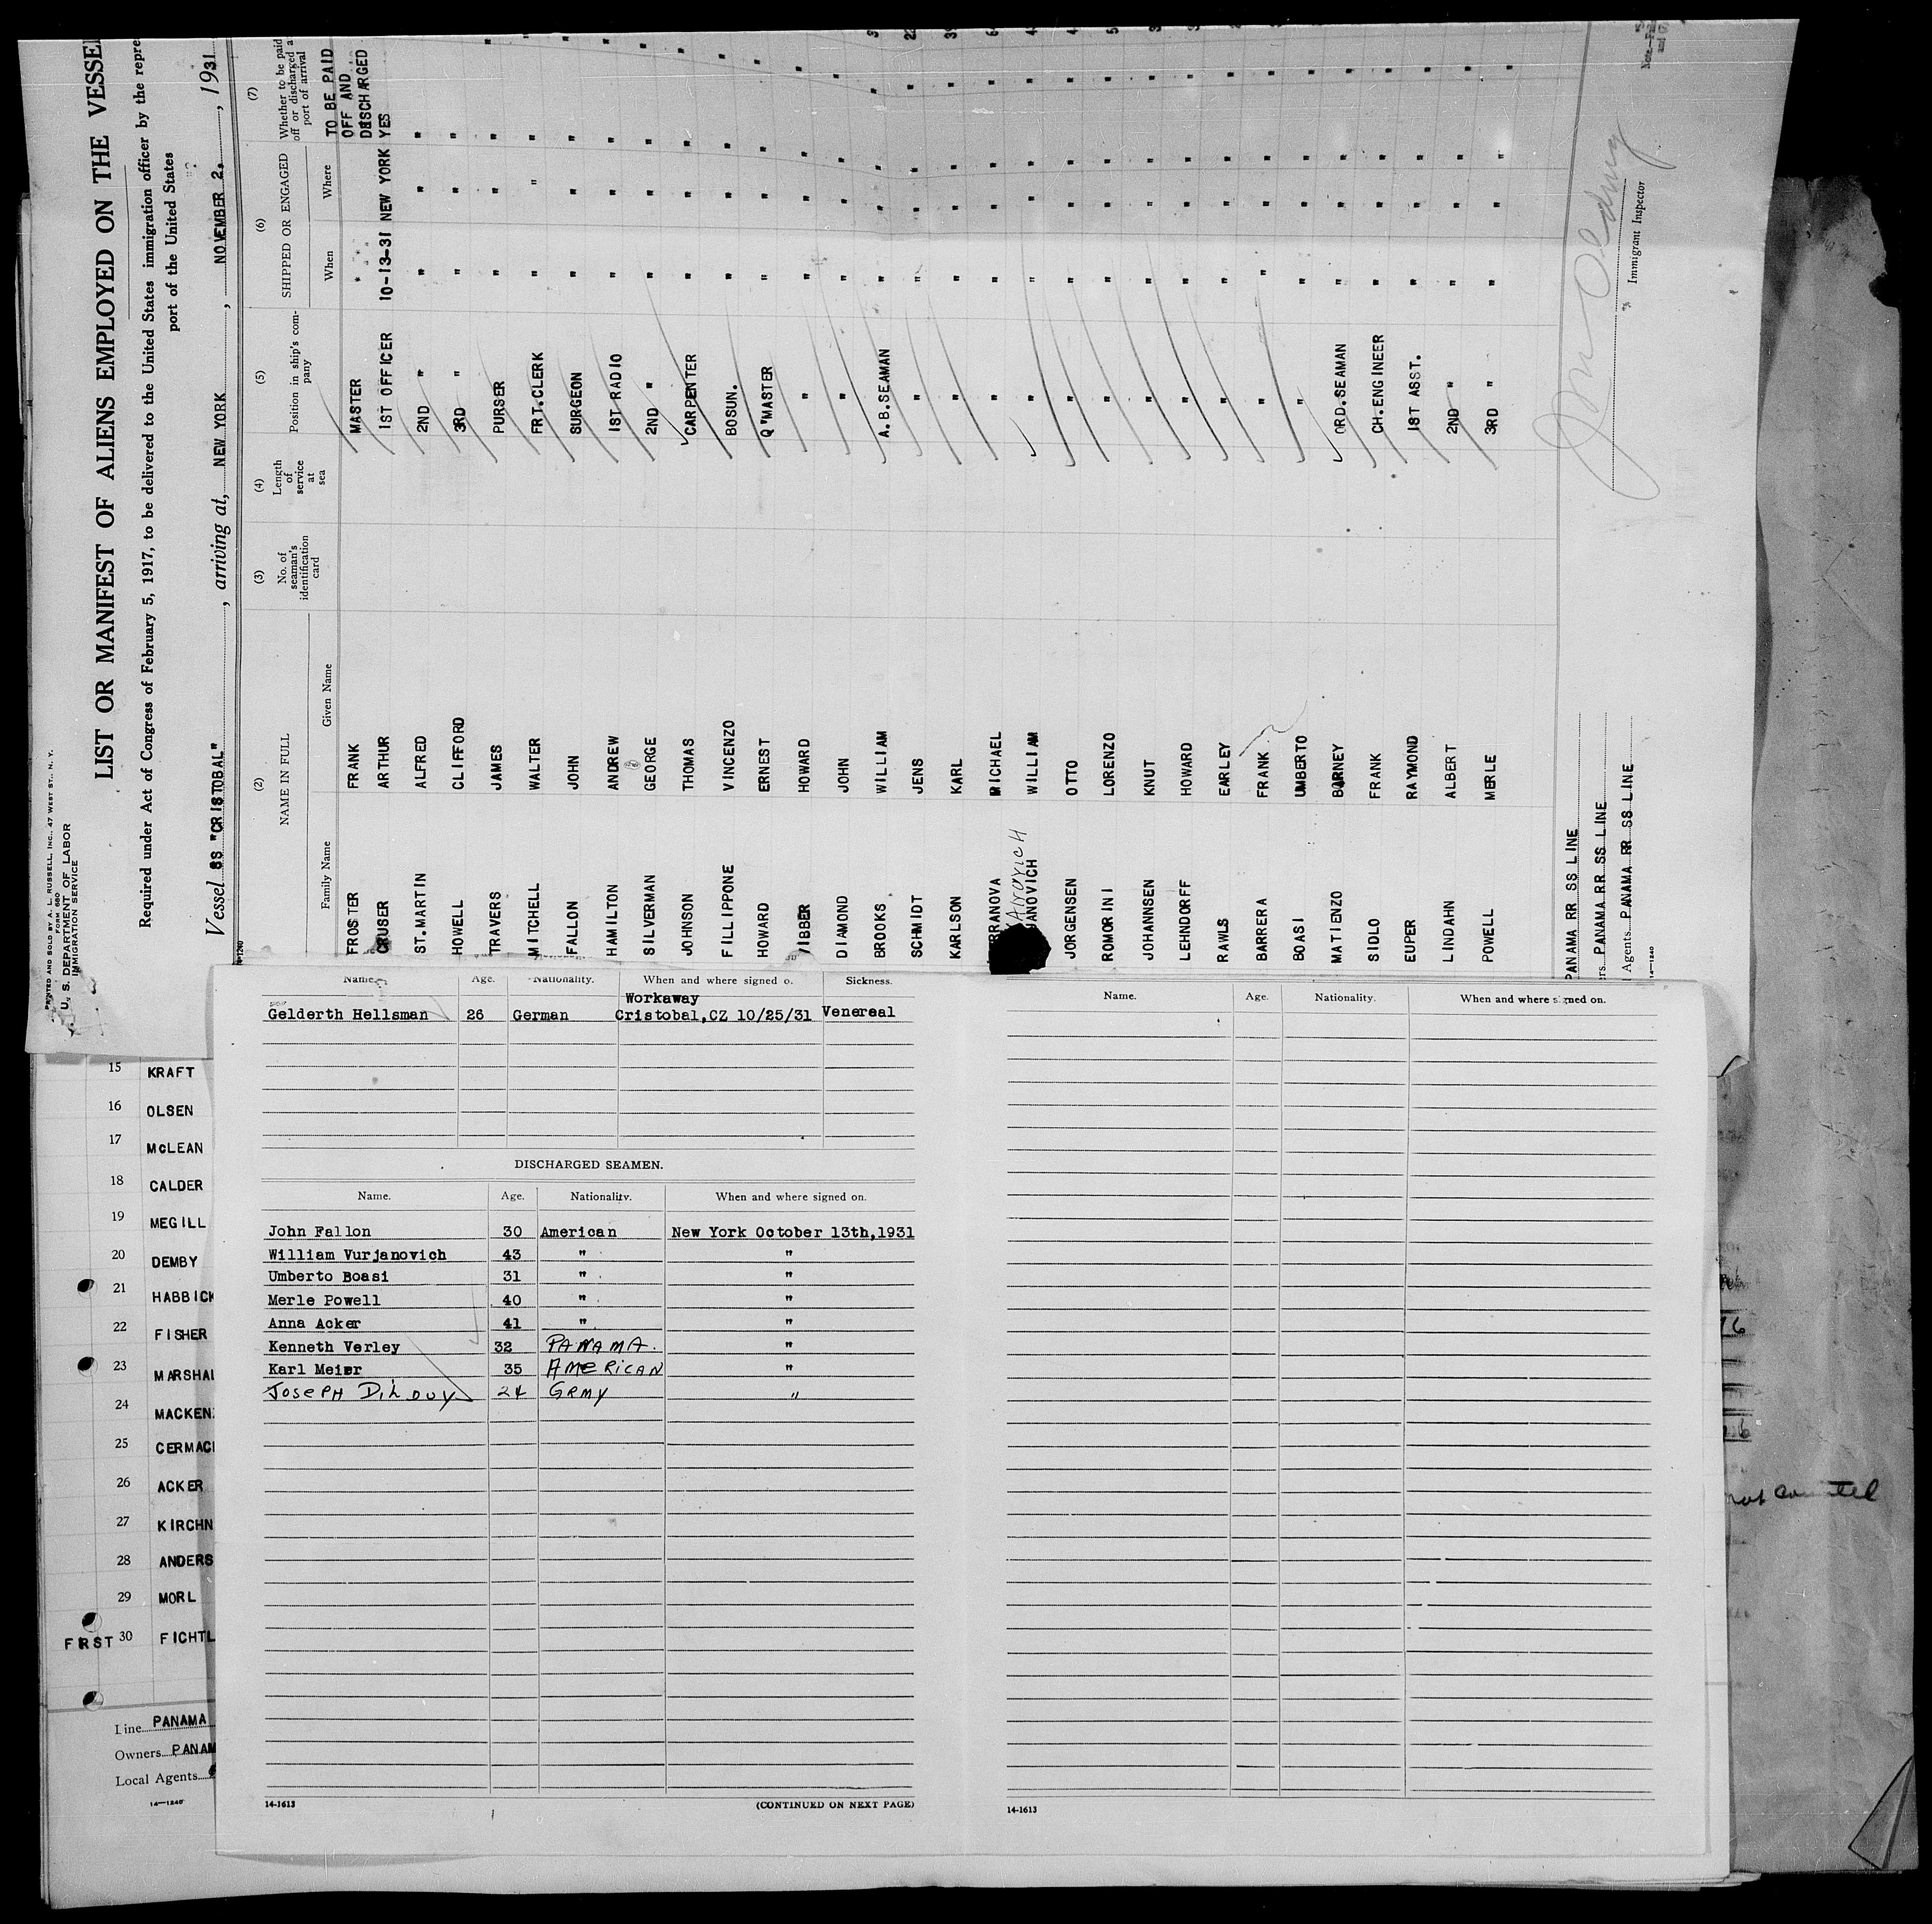 PRINTED AND SOLD BY A. L. RUSSELL, INC., 47 WEST ST., N. Y.
FORM 680
U. S. DEPARTMENT OF LABOR
IMMIGRATION SERVICE
LIST OR MANIFEST OF ALIENS EMPLOYED ON THE VESSEL
Required under Act of Congress of February 5, 1917, to be delivered to the United States immigration officer by the repre
port of the United States
Vessel SS "CRISTOBAL", arriving at, NEW YORK, NOVEMBER 2, 1931
(2) (3) (4) (5) (6) (7)
NAME IN FULL
No. of seaman's identification card
Length of service at sea
Position in ship's company
SHIPPED OR ENGAGED
Whether to be paid off or discharged at port of arrival
Family Name Given Name When Where
TO BE PAID
OFF AND
DISCHARGED
FROSTER FRANK MASTER " "
CRUSER ARTHUR 1ST OFFICER 10-13-31 NEW YORK YES
ST.MARTIN ALFRED 2ND " " " "
HOWELL CLIFFORD 3RD " " " "
TRAVERS JAMES PURSER " " "
MITCHELL WALTER FRT.CLERK " " "
FALLON JOHN SURGEON " " "
HAMILTON ANDREW 1ST RADIO " " "
SILVERMAN GEORGE 2ND " " " "
JOHNSON THOMAS CARPENTER " " "
FILLIPPONE VINCENZO BOSUN. " " "
HOWARD ERNEST Q"MASTER " " "
VIBBER HOWARD " " " "
DIAMOND JOHN " " " "
BROOKS WILLIAM A.B.SEAMAN " " "
SCHMIDT JENS " " " "
KARLSON KARL " " " "
RRANOVA MICHAEL " " " "
JANOVICH WILLIAM " " " "
JORGENSEN OTTO " " " "
ROMORINI LORENZO " " " "
JOHANNSEN KNUT " " " "
LEHNDORFF HOWARD " " " "
RAWLS EARLEY " " " "
BARRERA FRANK " " " "
BOASI UMBERTO " " " "
MATIENZO BARNEY ORD.SEAMAN " " "
SIDLO FRANK CH.ENGINEER " " "
EUPER RAYMOND 1ST ASST. " " "
LINDAHN ALBERT 2ND " " " "
POWELL MERLE 3RD " " " "
PANAMA RR SS LINE
rs PANAMA RR SS LINE
Agents PANAMA RR SS LINE
14-1240
Immigrant Inspector
Name. Age. Nationality. When and where signed o. Sickness.
Workaway
Gelderth Hellsman 26 German Cristobal,CZ 10/25/31 Venereal
DISCHARGED SEAMEN.
Name. Age. Nationality. When and where signed on.
John Fallon 30 American New York October 13th,1931
William Vurjanovich 43 " "
Umberto Boasi 31 " "
Merle Powell 40 " "
Anna Acker 41 " "
Kenneth Verley 32 PANAMA. "
Karl Meier 35 AMERICAN "
JOSEPH DILOUY 24 GRMY "
14-1613 (CONTINUED ON NEXT PAGE)
Name. Age. Nationality. When and where signed on.
14-1613
15 KRAFT
16 OLSEN
17 McLEAN
18 CALDER
19 MEGILL
20 DEMBY
21 HABBICK
22 FISHER
23 MARSHAL
24 MACKEN
25 CERMAC
26 ACKER
27 KIRCHN
28 ANDERS
29 MORL
FIRST 30 FICHTL
Line PANAMA
Owners PANAM
Local Agents
14-1240